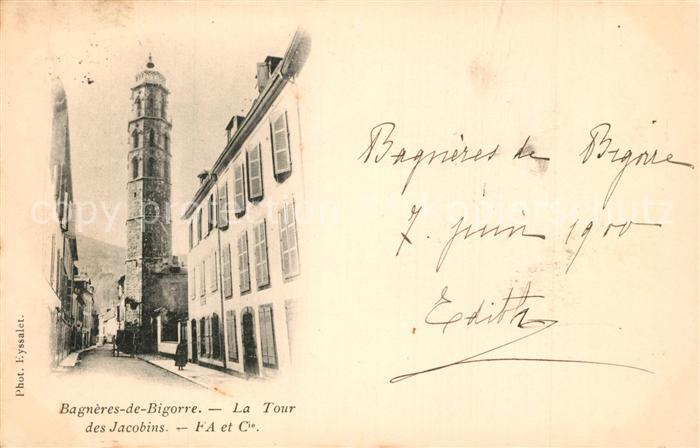 Bagnères de Bigorre
7. juin 1900
Edith
Phot. Eyssalet.
Bagnères-de-Bigorre. — La Tour
des Jacobins. — FA et Cie.
copyright ** Kopierschutz